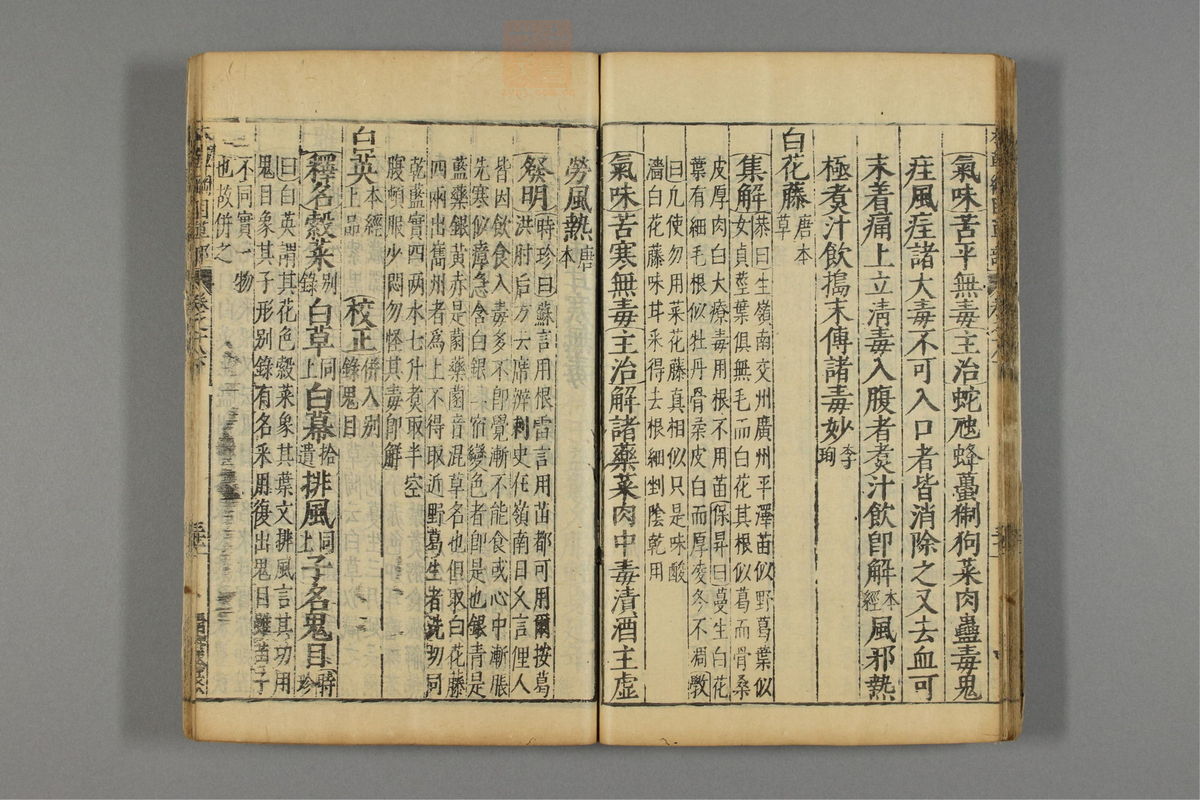 氣味苦平無毒主治蛇虺蜂蠆猘狗菜肉蠱毒鬼
疰風疰諸大毒不可入口者皆消除之又去血可
末着痛上立清毒入腹者煑汁飲卽解本經風邪熱
極煑汁飲搗末傅諸毒妙李珣
白花藤唐本草
集解恭曰生嶺南交州廣州平澤苗似野葛葉似
女貞莖葉俱無毛而白花其根似葛而骨柔
皮厚肉白大療毒用根不用苗保昇曰蔓生白花
葉有細毛根似牡丹骨柔皮白而厚凌冬不凋斆
曰凡使勿用菜花藤真相似只是味酸
濇白花藤味甘采得去根細剉陰乾用
氣味苦寒無毒主治解諸藥菜肉中毒漬酒主虛
勞風熱唐本
發明時珍曰蘇言用根雷言用苗都可用爾按葛
洪肘后方云席辨刺史在嶺南日久言俚人
皆因飲食入毒多不卽覺漸不能食或心中漸脹
先寒似瘴急含白銀一宿變色者卽是也銀青是
藍藥銀黃赤是菌藥菌音混草名也但取白花藤
四兩出嶲州者爲上不得取近野葛生者洗切同
乾藍實四兩水七升煑取半空
腹頓服少悶勿怪其毒卽解
白英本經上品 校正併入别錄鬼目
釋名穀菜别錄白草同上白幕拾遺排風同上子名鬼目時珍
曰白英謂其花色穀菜象其葉文排風言其功用
鬼目象其子形别錄有名未用復出鬼目雖苗子
不同實一物
也故併之